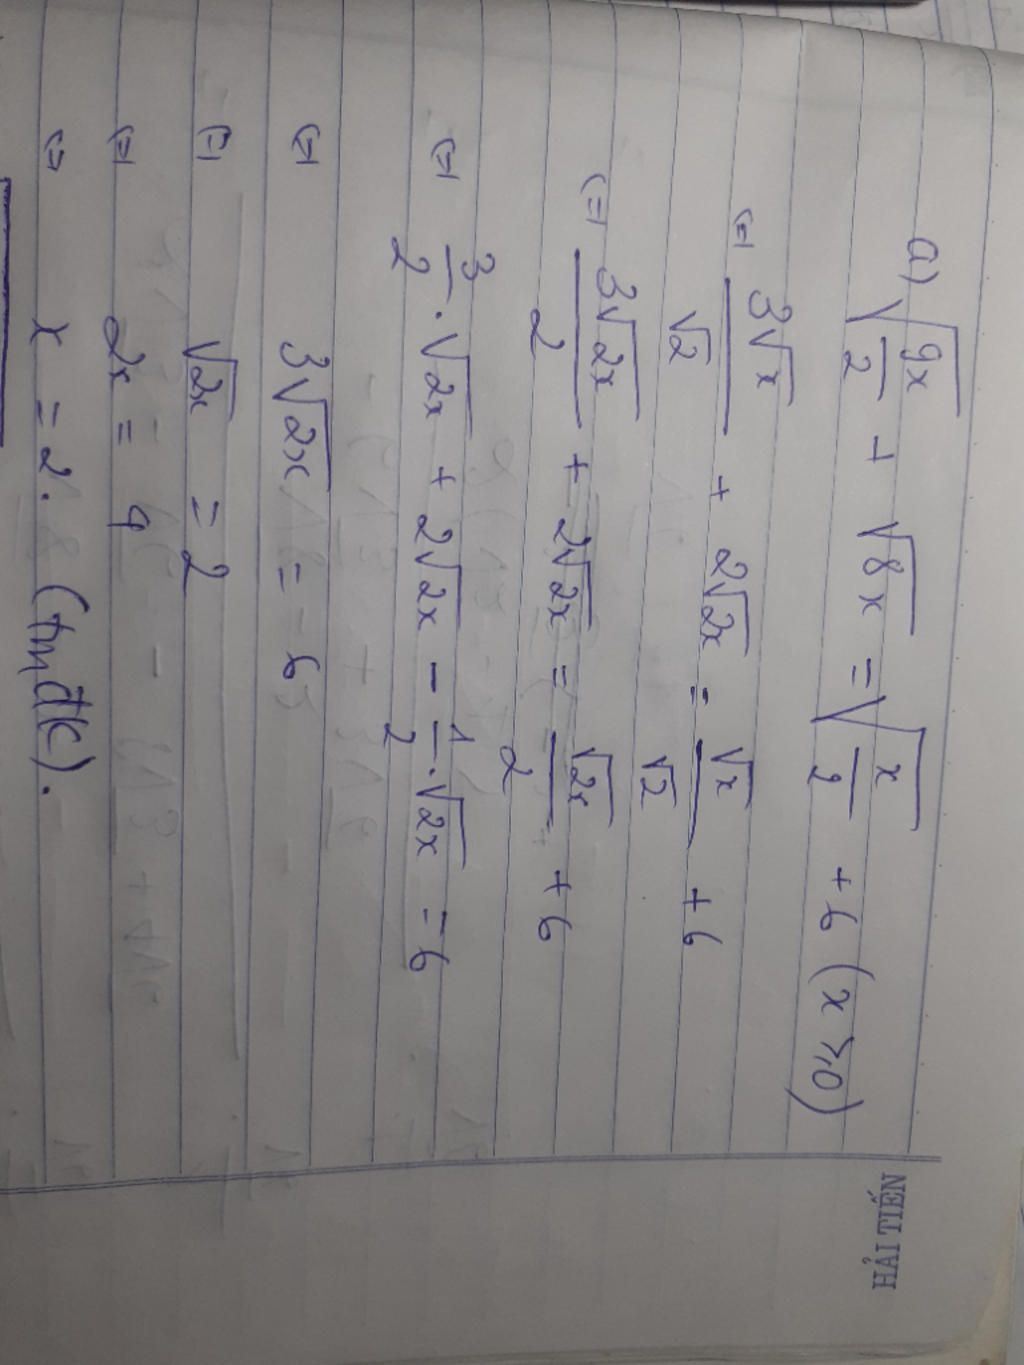 a) √(9x/2) + √(8x) = √(x/2) + 6 (x ≥ 0)
(=) 3√x/√2 + 2√(2x) = √x/√2 + 6
(=) 3√(2x)/2 + 2√(2x) = √(2x)/2 + 6
(=) 3/2 . √(2x) + 2√(2x) - 1/2 . √(2x) = 6
(=) 3√(2x) = 6
(=) √(2x) = 2
(=) 2x = 4
(=) x = 2. (tmđk).
HẢI TIẾN